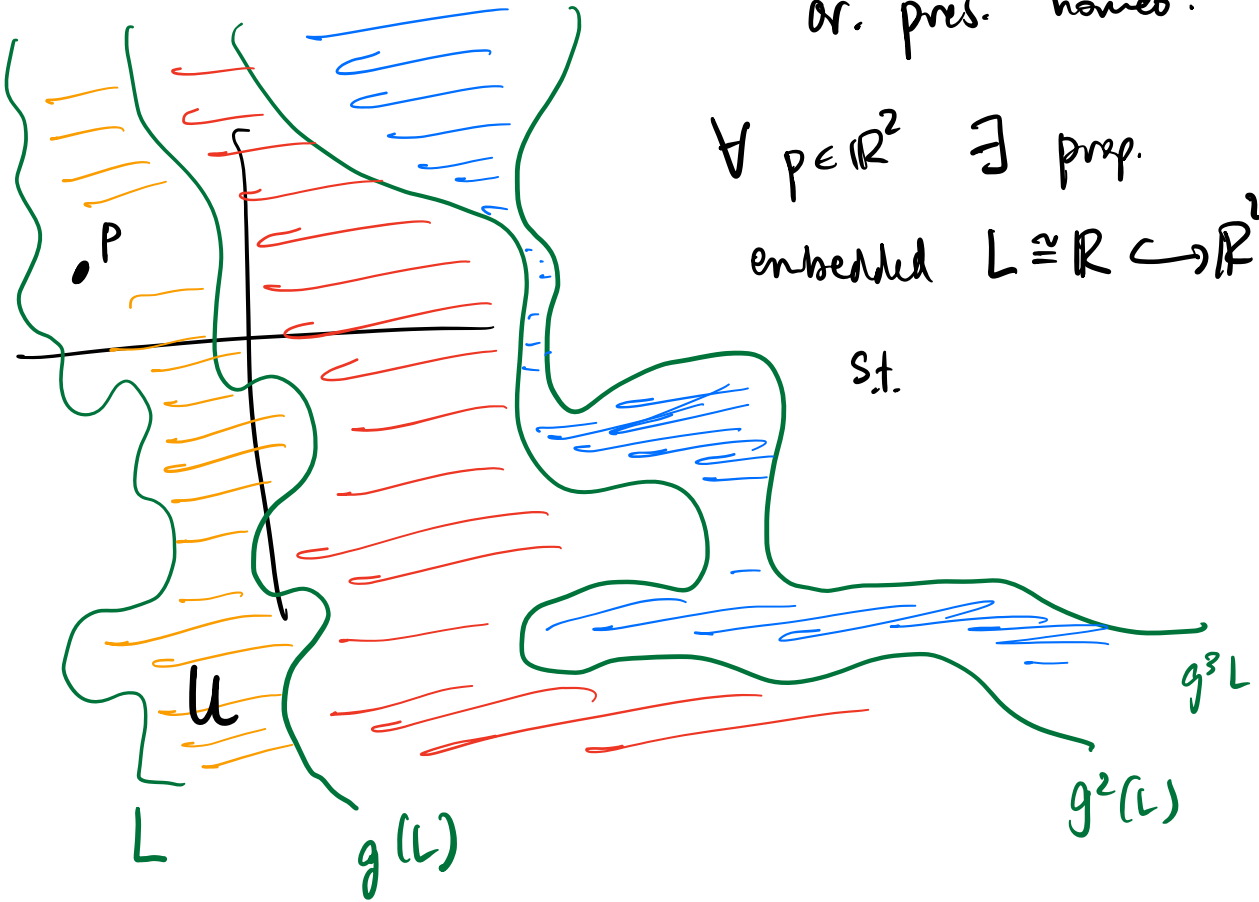 or. pres. homeo.
∀ p ∈ ℝ² ∃ prop.
embedded L ≅ ℝ ↪ ℝ²
s.t.
P
U
L
g(L)
g²(L)
g³L